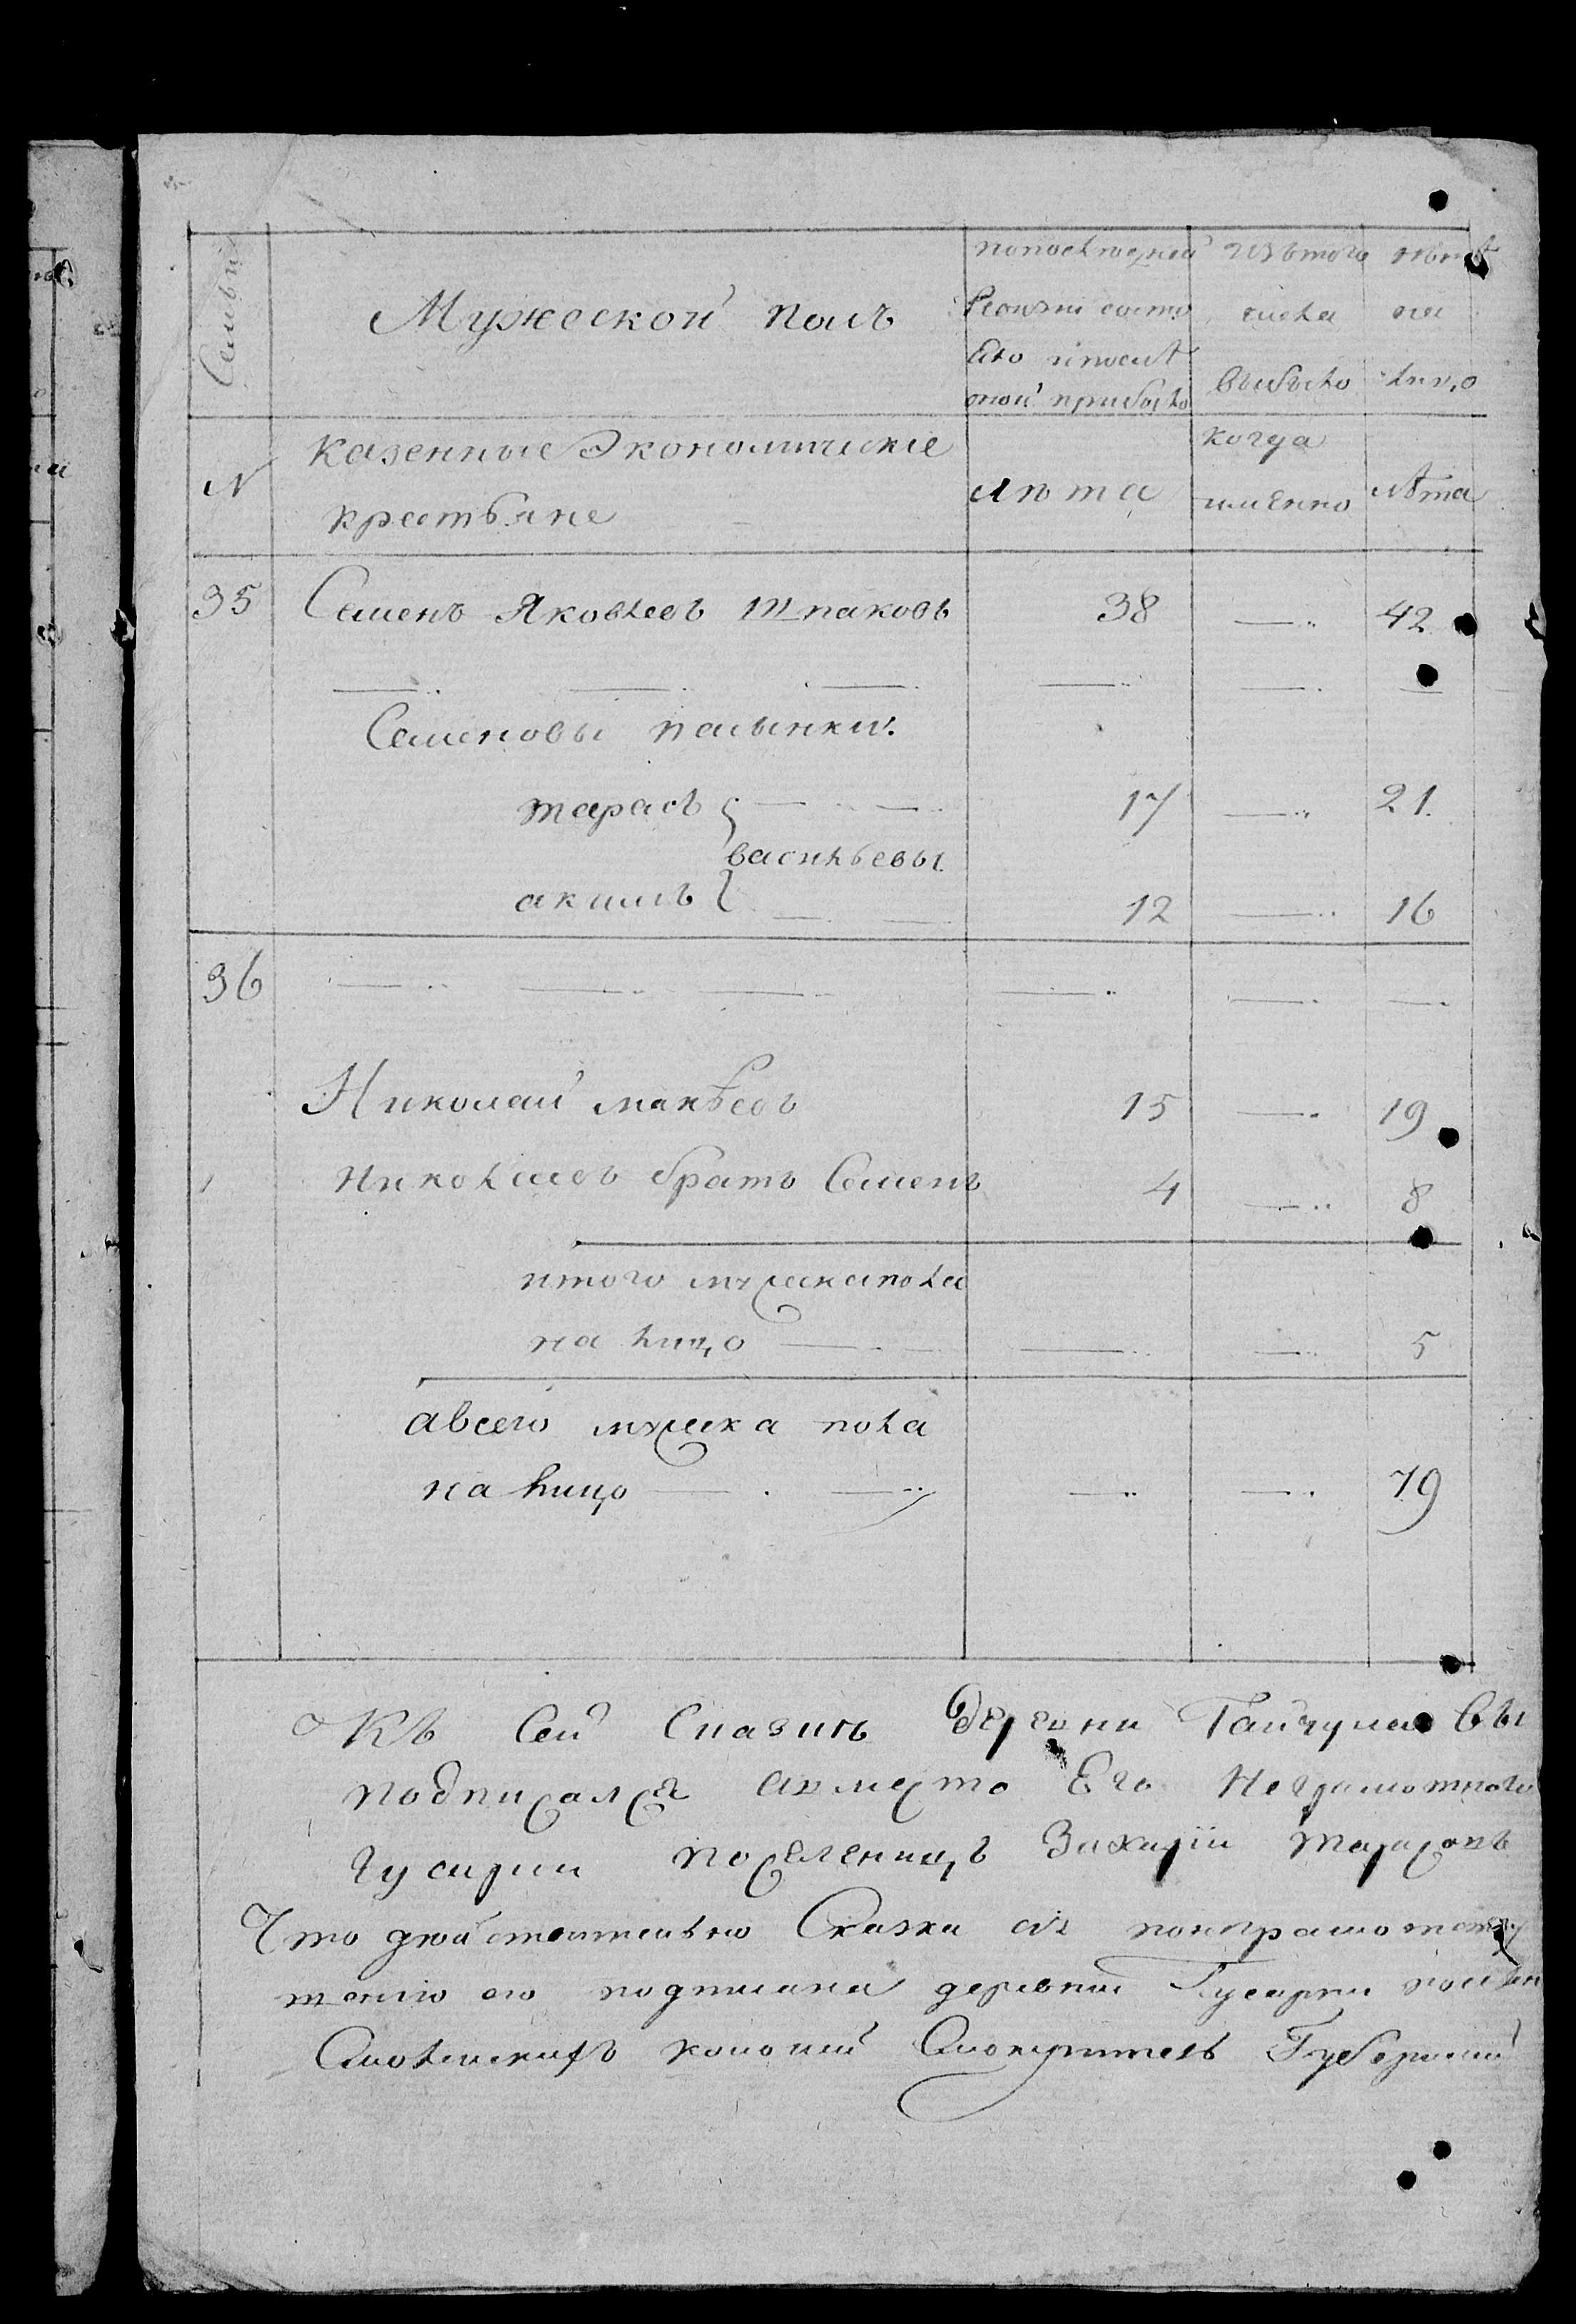 Семьи
Мужеской полъ
попоследней
Ревизии состо
яло ипосле
оной прибыло
изътого
числа
выбыло
ныне
на
лицо
N
казенные Экономические
крестьяне
лѣта
когда
именно
лѣта
35 Семенъ Яковлевъ шпаковъ 38 42
Семеновы пасынки.
тарасъ 17 21.
васильевы
акимъ 12 16
36
Николай макѣевъ 15 19
Николаевъ братъ Семенъ 4 8
итого мужескапола
на лицо 5
авсего мужска пола
на лицо 79
Къ Сей Сказки деревни Гайчула Вы
подписался вместо Его Неграмотного
гусарки поселенцъ Захарiи тарасовъ
Что действительно Сказка сiя понеграмотству
деревни Гусарки
Смоленскихъ колоний Смотритель Губернский